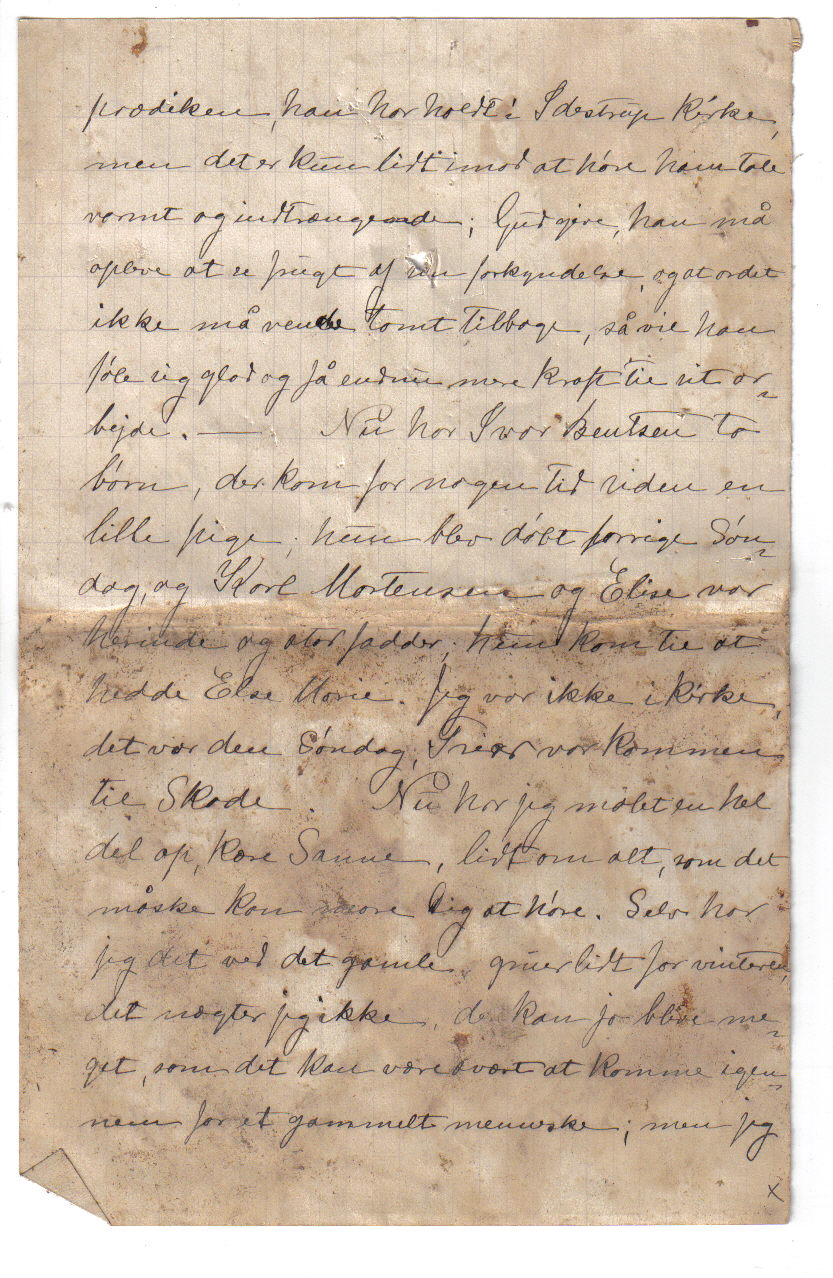 prædiken, han har holdt i Idestrup Kirke,
men det er kun lidt imod at höre ham tale
varmt og indtrængende; Gud give, han må
opleve at se frugt af sin forkyndelse, og at ordet
ikke må vende tomt tilbage, så vil han
föle sig glad og få endnu mere kraft til sit ar-
bejde. — Nu har Ivar Bentsen to
börn, der kom for nogen tid siden en
lille pige; hun blev döbt forrige Sön-
dag, og Karl Mortensen og Elise var
herinde og stod fadder; hun kom til at
hedde Else Marie. Jeg var ikke i Kirke,
det var den Söndag, Trier var kommen
til Skade. Nu har jeg malet en hel
del op, kære Sanne, lidt om alt, som det
måske kan more Dig at höre. Selv har
jeg det ved det gamle, gruer lidt for vinteren,
det nægter jeg ikke, der kan jo blive me-
get, som det kan være svært at komme igen-
nem for et gammelt menneske; men jeg
x